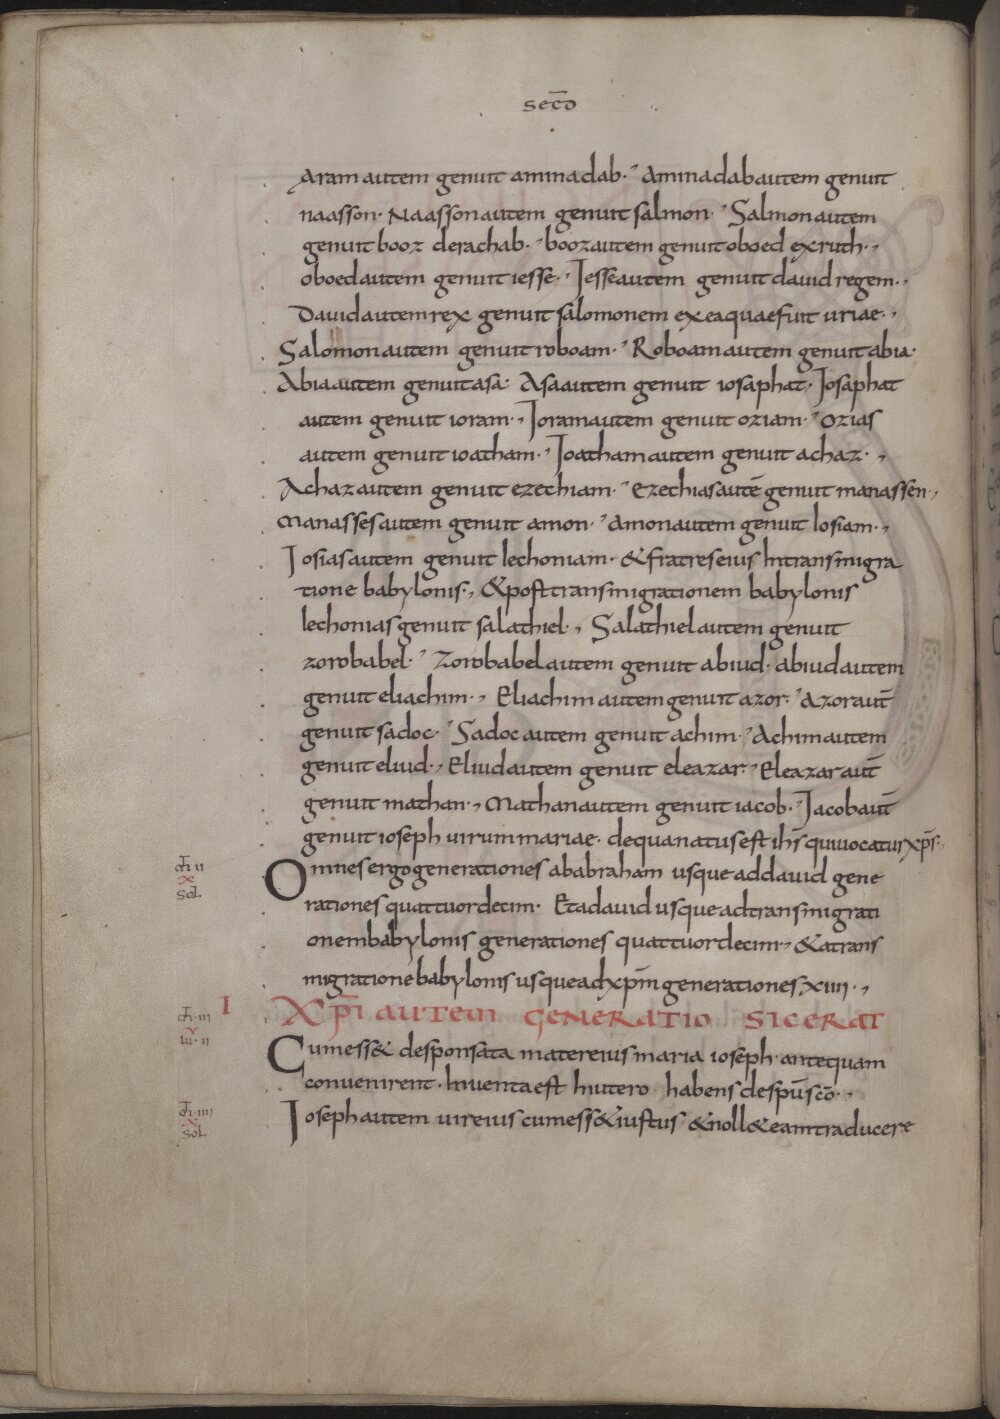 sec̄d
Aram autem genuit aminadab· Aminadab autem genuit
naasson· Naasson autem genuit salmon· Salmon autem
genuit booz de rachab· booz autem genuit oboed ex ruth·,
oboed autem genuit iesse·, Iesse autem genuit dauid regem·,
Dauid autem rex genuit salomonem ex ea quae fuit uriae·,
Salomon autem genuit roboam· Roboam autem genuit abia·
Abia autem genuit asa· Asa autem genuit iosaphat· Iosaphat
autem genuit ioram·, Ioram autem genuit oziam· Ozias
autem genuit ioatham· Ioatham autem genuit achaz·,
Achaz autem genuit ezechiam· Ezechias autē genuit manassen·,
Manasses autem genuit amon· Amon autem genuit Iosiam·,
Iosias autem genuit Iechoniam· & fratres eius In transmigra
tione babylonis·, & post transmigrationem babylonis
Iechonias genuit salathiel·, Salathiel autem genuit
zorobabel· Zorobabel autem genuit abiud· abiud autem
genuit eliachim·, Eliachim autem genuit azor· Azor aut̄
genuit sadoc· Sadoc autem genuit achim· Achim autem
genuit eliud·, Eliud autem genuit eleazar· Eleazar aut̄
genuit mathan·, Mathan autem genuit iacob· Iacob aut̄
genuit ioseph uirum mariae· de qua natus est ih̄s qui uocatur xp̄s·,
Omnes ergo generationes ab abraham usque ad dauid gene
rationes quattuordecim· Et a dauid usque ad transmigrati
onem babylonis generationes quattuordecim·, & a trans
migratione babylonis usque ad xp̄m generationes xiiii·,
I Xp̄i autem generatio sic erat
Cum ess& desponsata mater eius maria ioseph· antequam
conuenirent· Inuenta est In utero habens de sp̄u sc̄o·,
Ioseph autem uir eius cum ess& iustus & noll& eam traducere
ii
x
sol
iii
v
lu· ii
iiii
x
sol